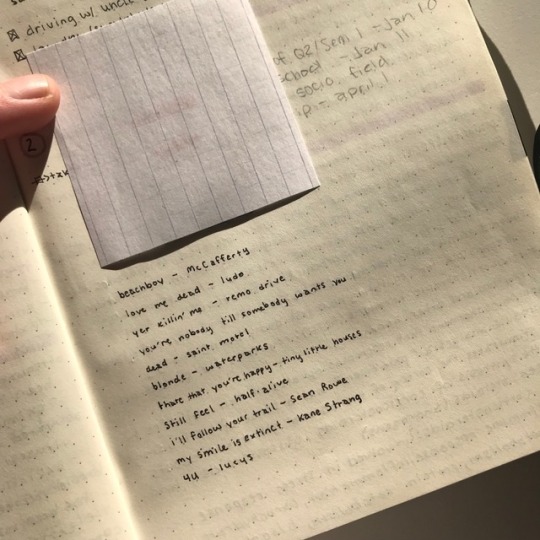 driving w/ uncle
of Q2/Sem 1 - Jan 10
school - Jan 11
socio field
p - april 1
2
beachboy - McCafferty
love me dead - ludo
yer killin' me - remo drive
you're nobody till somebody wants you
dead - saint motel
blonde - waterparks
thare that you're happy - tiny little houses
still feel - half·alive
i'll follow your trail - Sean Rowe
my smile is extinct - Kane Strang
4u - lucys